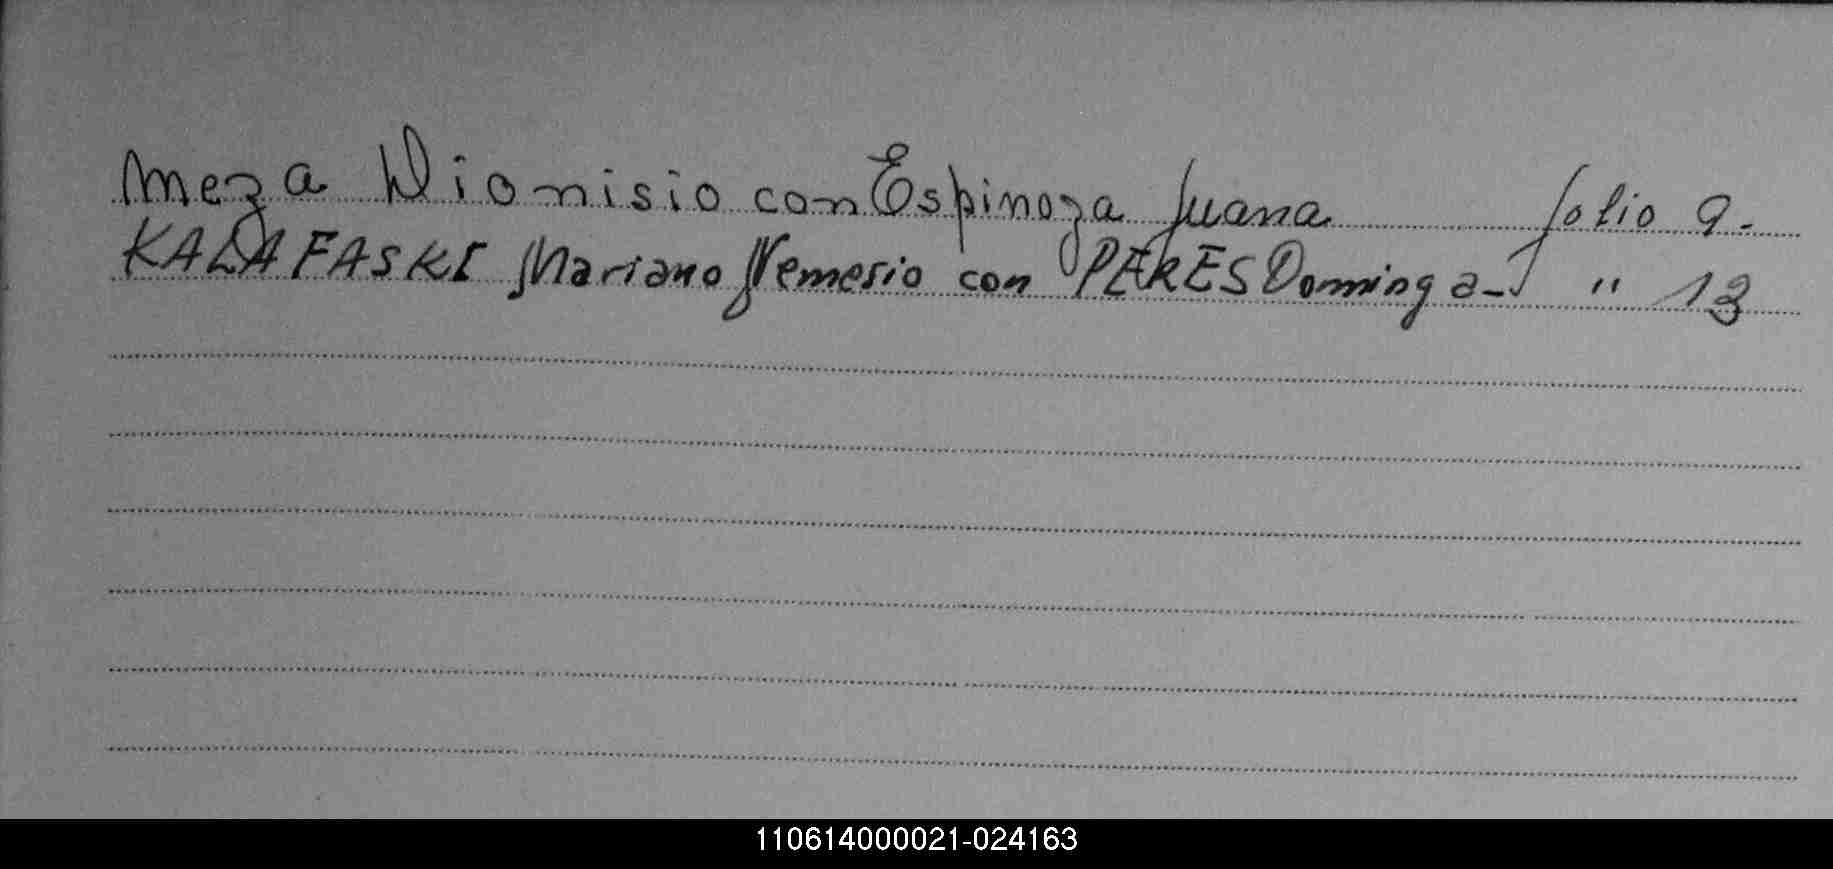 Meza Dionisio con Espinoza Juana folio 9.
KALAFASKI Mariano Nemesio con PERES Dominga - " 13
110614000021-024163